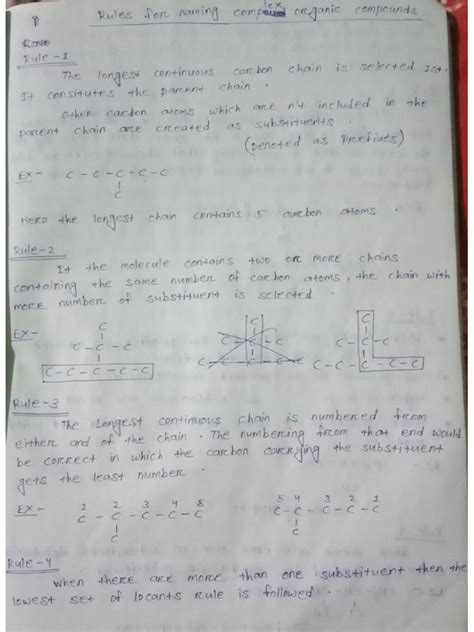 Rules for naming complex organic compounds
Rule-1
The longest continuous carbon chain is selected 1st.
It consitutes the parent chain.
Other carbon atoms which are n't included in the
parent chain are created as substituents.
(Denoted as prefixes)
Ex- C-C-C-C-C
C
Here the longest chain contains 5 carbon atoms.
Rule-2
It the molecule contains two or more chains
containing the same number of carbon atoms, the chain with
more number of substituent is selected.
Ex-
C C C
C-C-C C-C-C C-C
C-C-C-C-C C-C-C C-C-C-C-C
Rule-3
The Longest continuous chain is numbered from
either and of the chain. The numbering from that end would
be correct in which the carbon carrying the substituent
gets the least number.
1 2 3 4 5 5 4 3 2 1
Ex- C-C-C-C-C C-C-C-C-C
C C
Rule-4
When there are more than one substituent then the
lowest set of locants rule is followed.